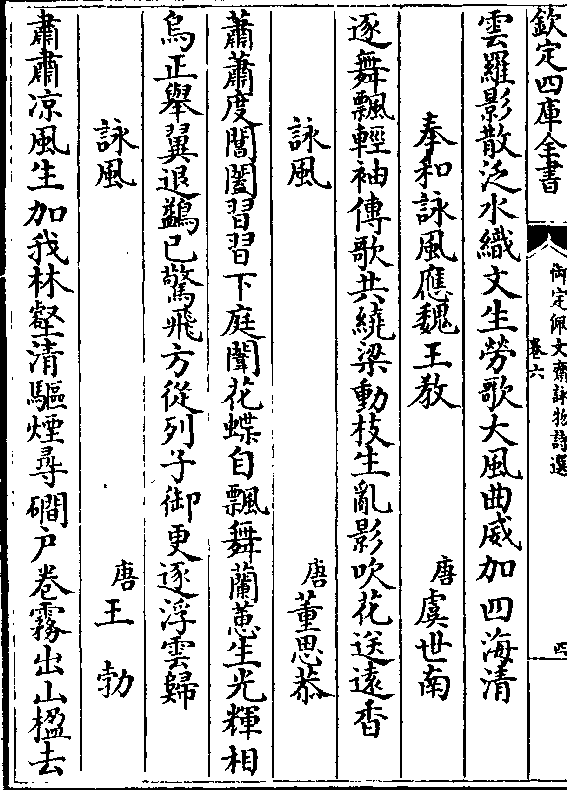 欽定四庫全書
御定佩文齋詠物詩選
卷六
四
雲羅影散泛水織文生勞歌大風曲威加四海清
奉和詠風應魏王教 唐虞世南
逐舞飄輕袖傳歌共繞梁動枝生亂影吹花送遠香
詠風 唐董思恭
蕭蕭度閶闔習習下庭闈花蝶自飄舞蘭蕙生光輝相
烏正舉翼退鷁已驚飛方從列子御更逐浮雲歸
詠風 唐王勃
肅肅凉風生加我林壑清驅煙尋磵戶卷霧出山楹去